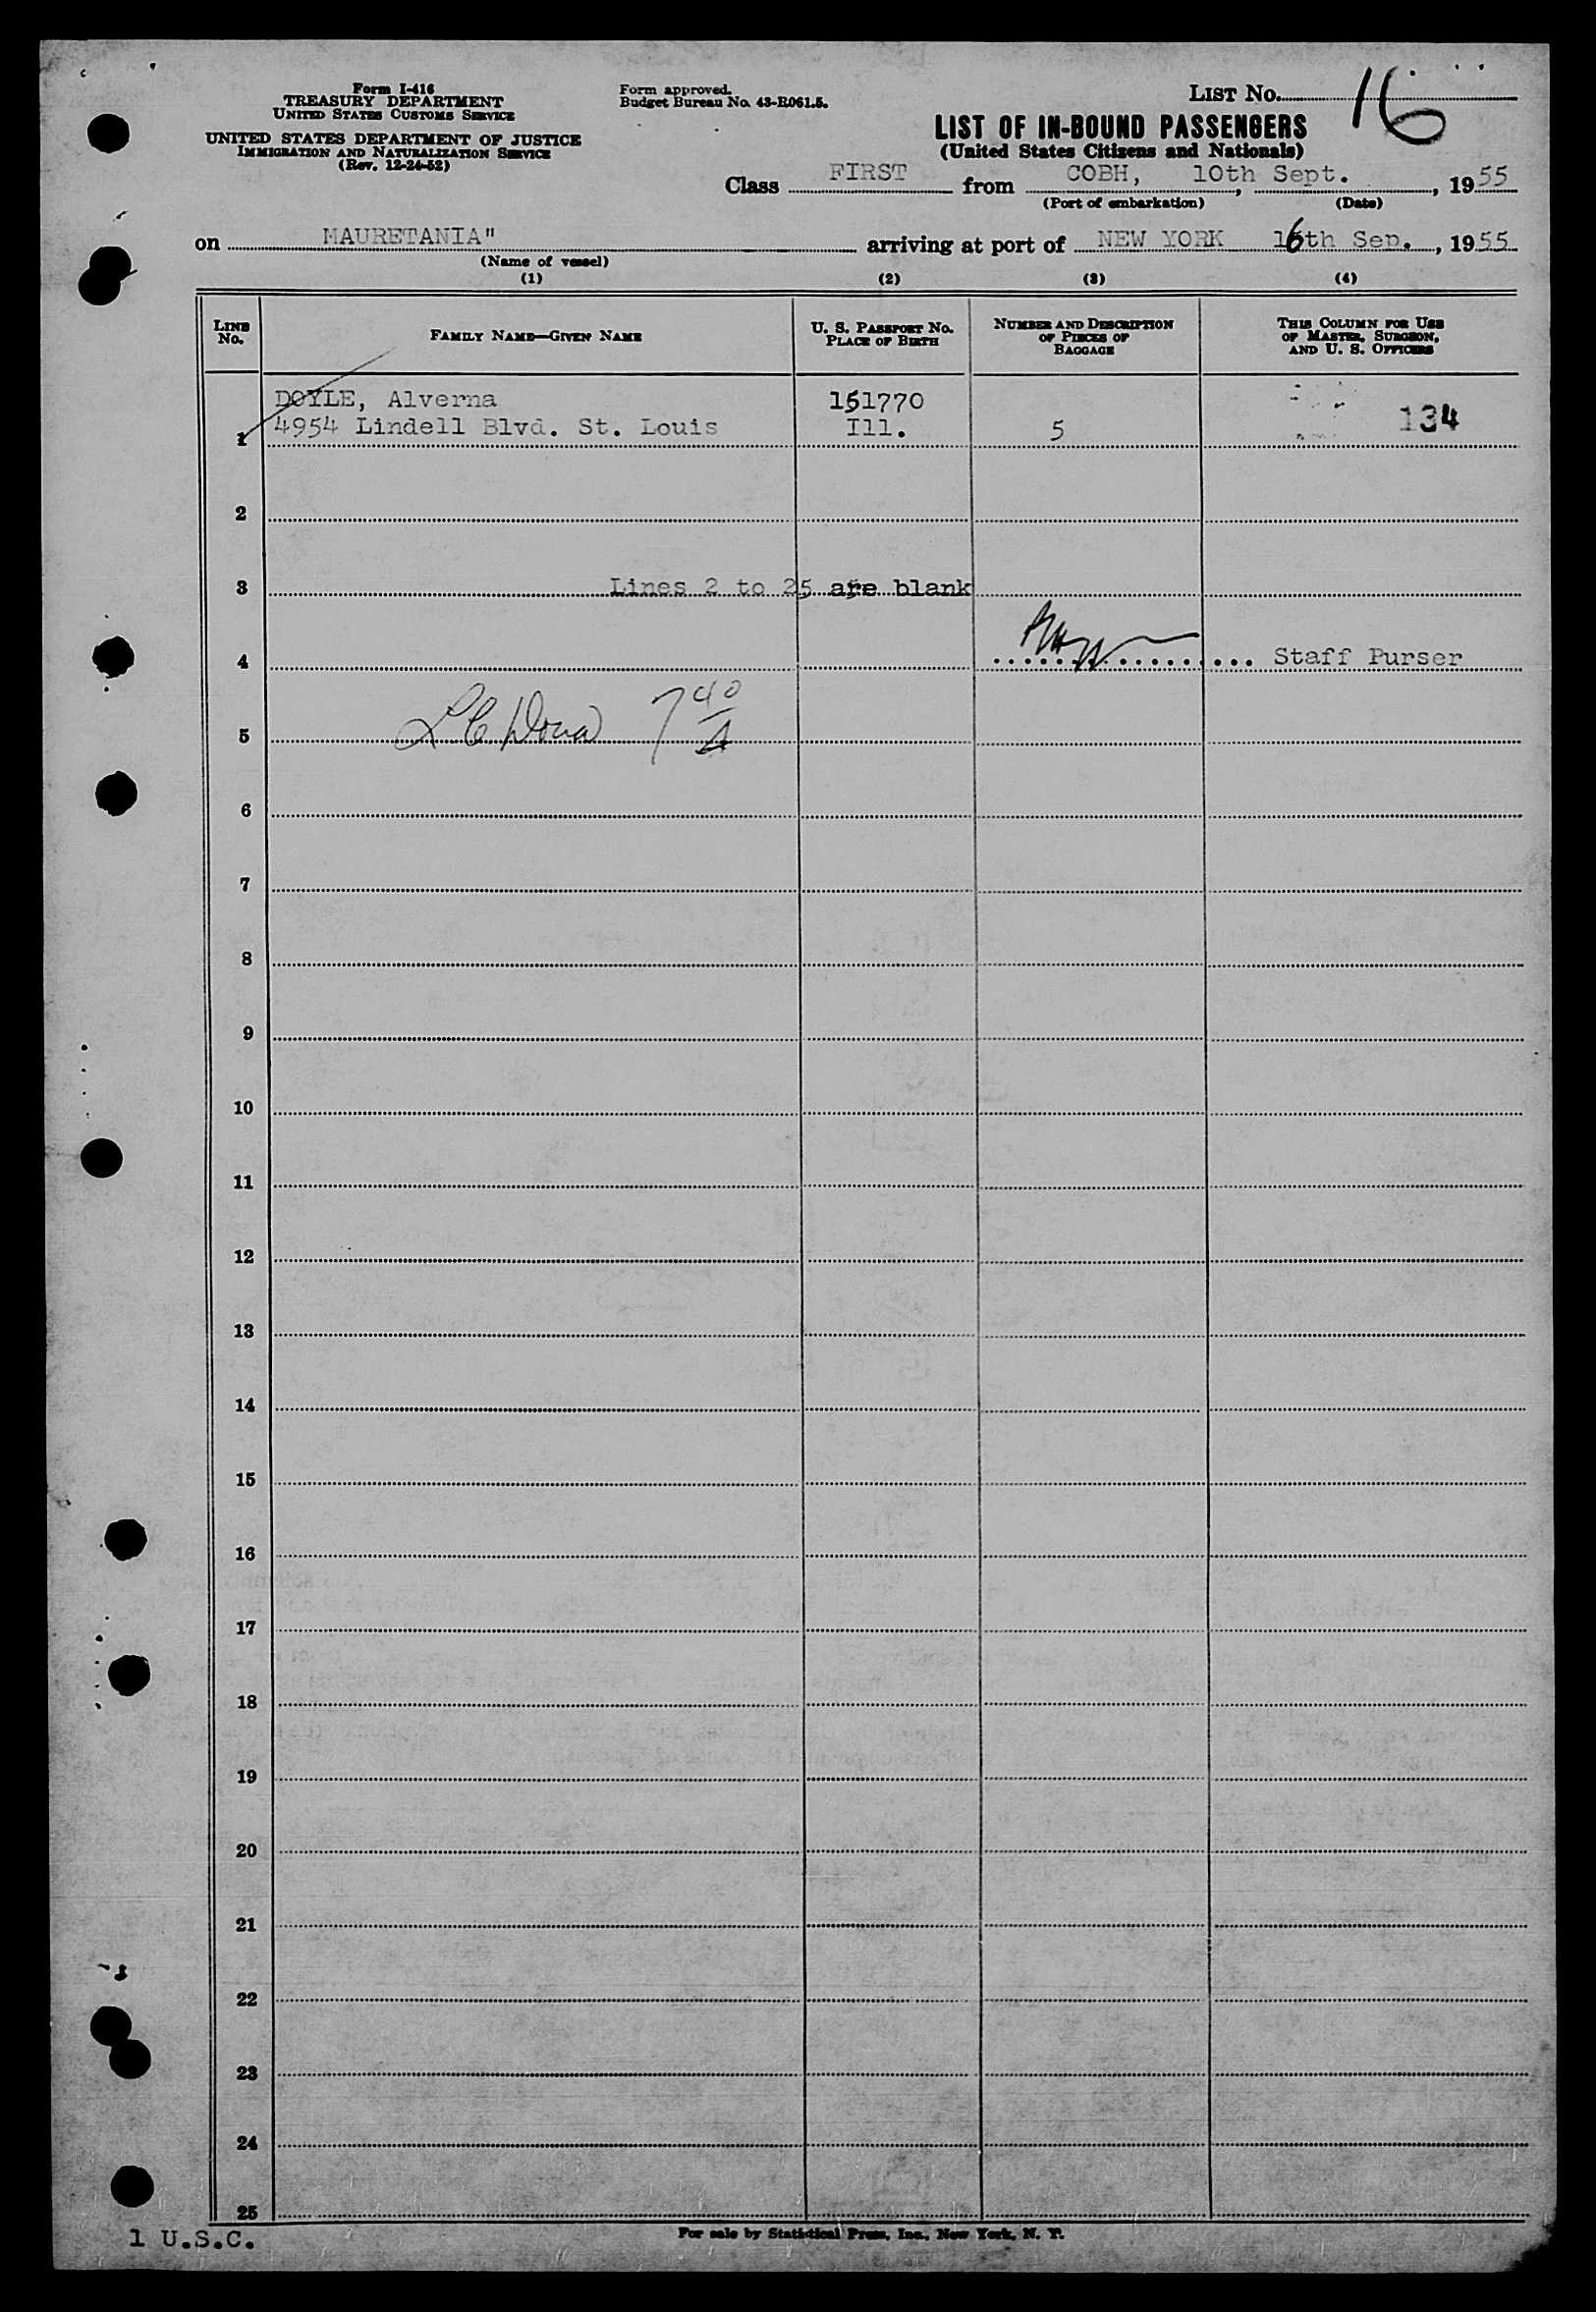 Form I-416
TREASURY DEPARTMENT
UNITED STATES CUSTOMS SERVICE
UNITED STATES DEPARTMENT OF JUSTICE
IMMIGRATION AND NATURALIZATION SERVICE
(Rev. 12-24-52)
Form approved.
Budget Bureau No. 43-R061.5.
LIST NO. 16
LIST OF IN-BOUND PASSENGERS
(United States Citizens and Nationals)
Class FIRST from COBH, 10th Sept., 1955
(Port of embarkation) (Date)
on MAURETANIA" arriving at port of NEW YORK 16th Sep., 1955
(Name of vessel)
(1) (2) (3) (4)
LINE No.
FAMILY NAME—GIVEN NAME
U. S. PASSPORT NO.
PLACE OF BIRTH
NUMBER AND DESCRIPTION
OF PIECES OF
BAGGAGE
THIS COLUMN FOR USE
OF MASTER, SURGEON,
AND U. S. OFFICERS
DOYLE, Alverna 151770
1 4954 Lindell Blvd. St. Louis Ill. 5 134
2
3 Lines 2 to 25 are blank
4 Staff Purser
5 7 40/A
6
7
8
9
10
11
12
13
14
15
16
17
18
19
20
21
22
23
24
25
1 U.S.C.
For sale by Statistical Press, Inc., New York, N. Y.